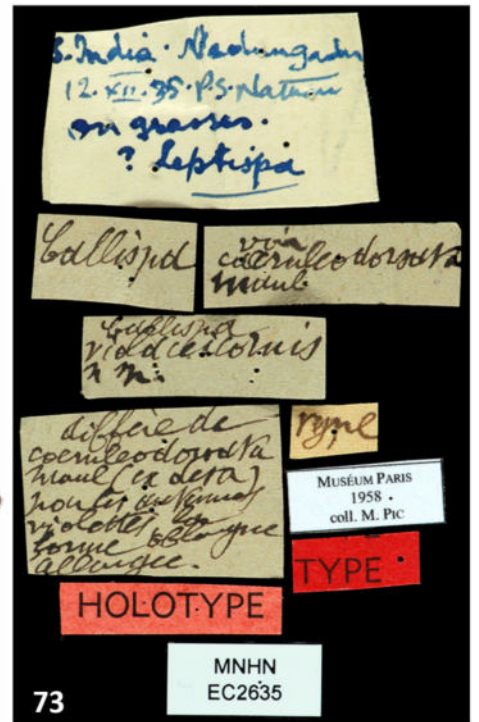 S. India. Nedungadu
12.XII.35. P.S. Nathan
on grasses.
? Leptispa
Callispa
voir
coeruleodorsata
Maul.
Callispa
n
diffère de
coeruleodorsata
Maul (ex descr)
par les antennes
violettes la
forme oblongue
allongée.
type
MUSÉUM PARIS
1958
coll. M. PIC
TYPE
HOLOTYPE
MNHN
EC2635
73